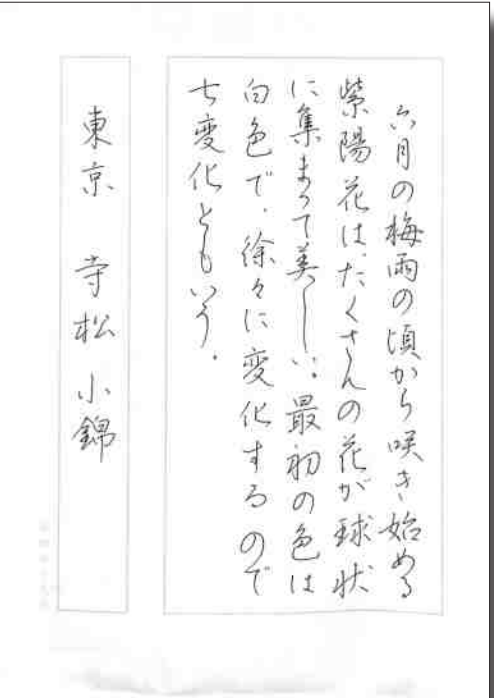 六月の梅雨の頃から咲き始める
紫陽花は、たくさんの花が球状
に集まって美しい。最初の色は
白色で、徐々に変化するので
七変化ともいう。
東京 寺松 小錦